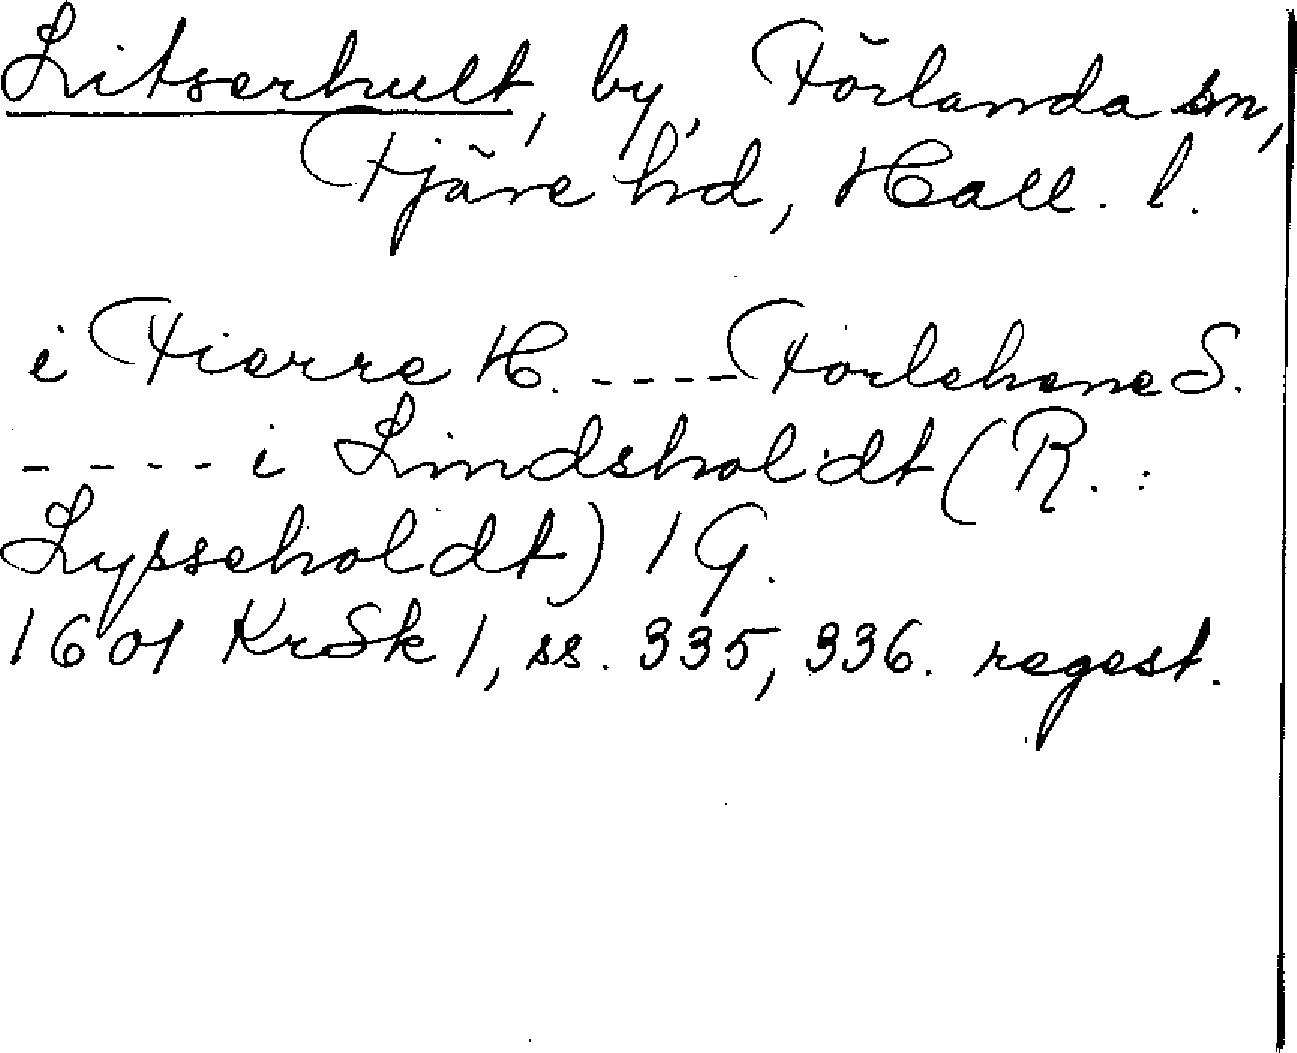 Litserhult, by, Förlanda sn,
Fjäre hd, Hall. l.
i Fierre H. ---- Forlehane S.
---- i Lindsholdt (R. :
Lysseholdt) 1 G.
1601 KrSk 1, ss. 335, 336. regest.